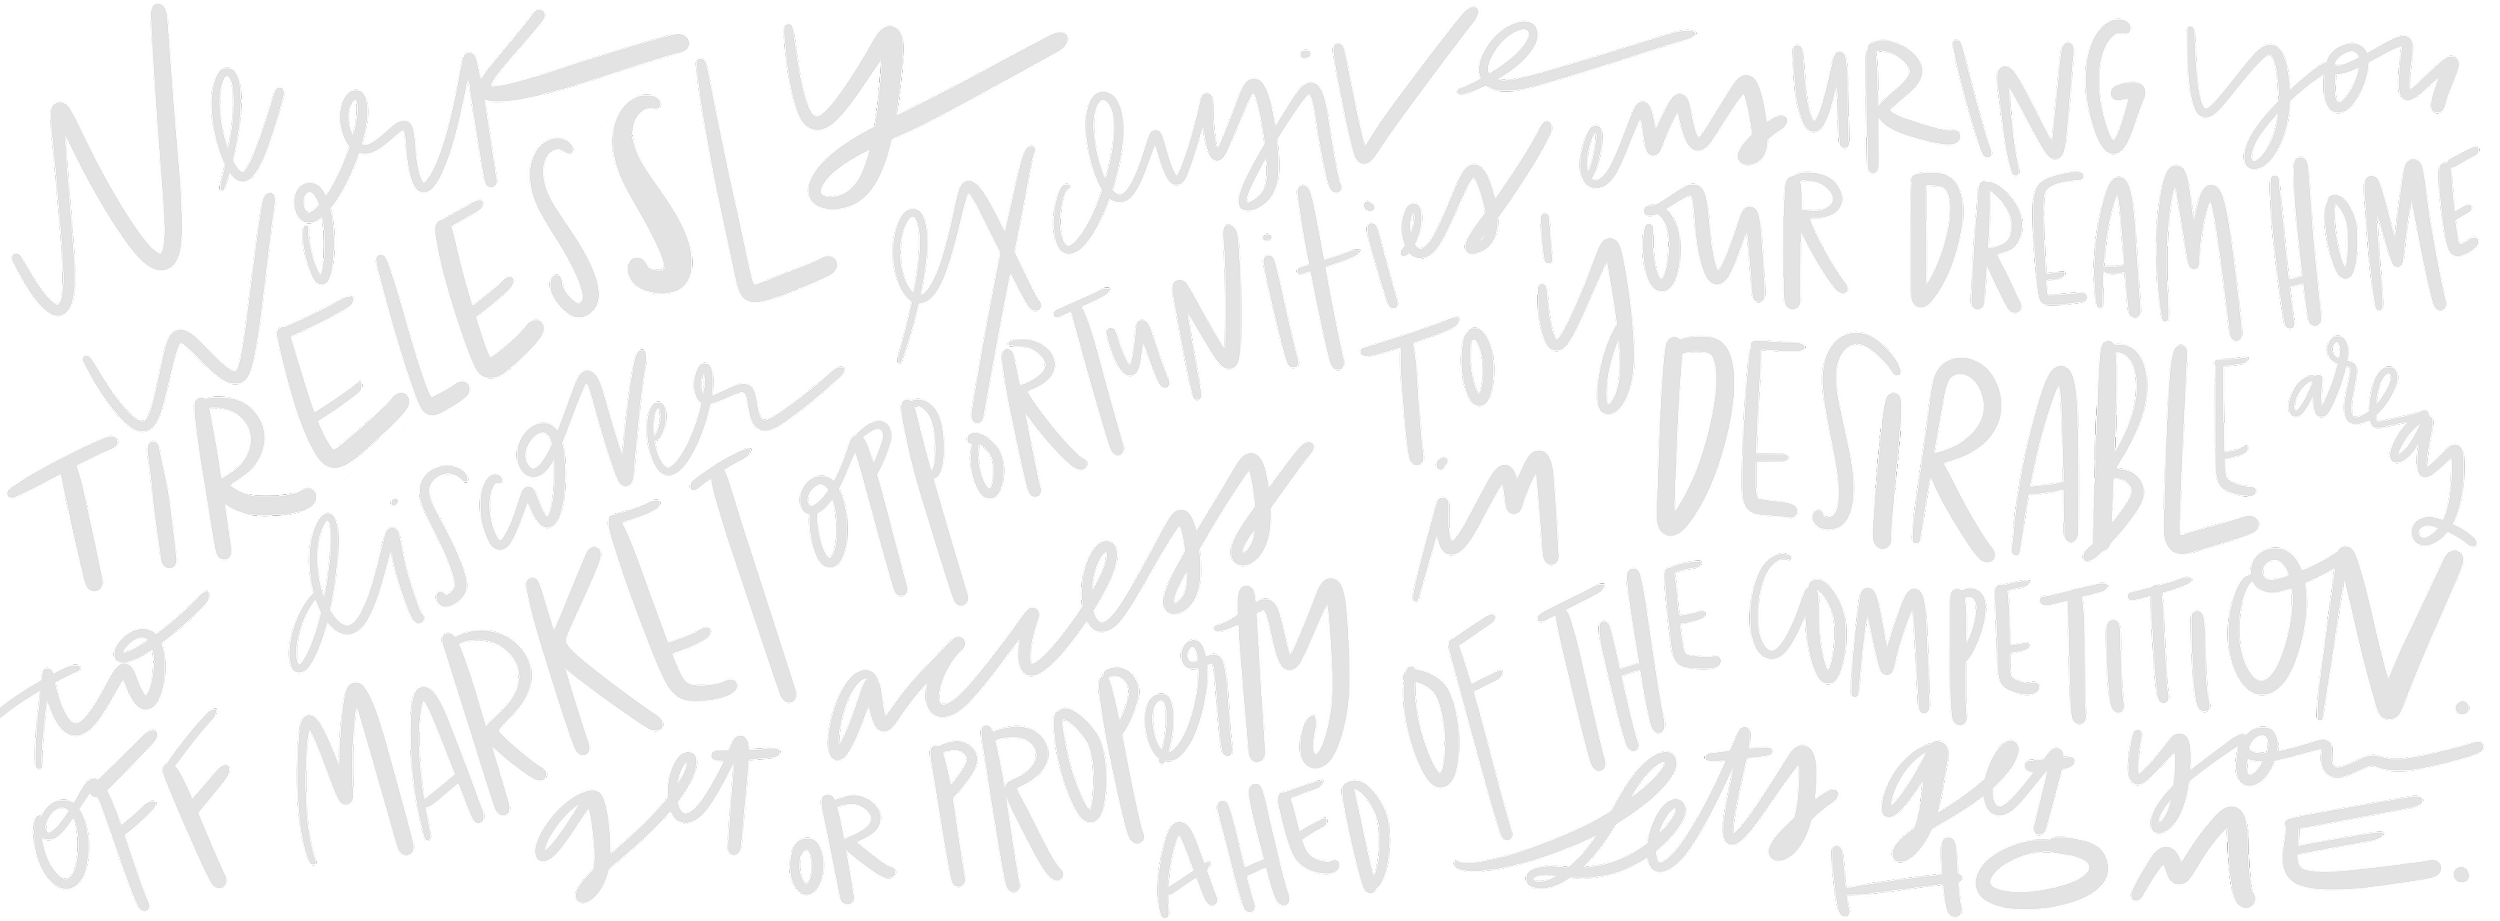 We work
TIRELESSLY
to discover exclusive
OFF MARKET OPPORTUNITIES, ensuRING you
get access TO your DREAM HOME
OR PROPERTY in DESIRABLE areas
AHEAD OF THE COMPETITION.
Let's get you
HOME.